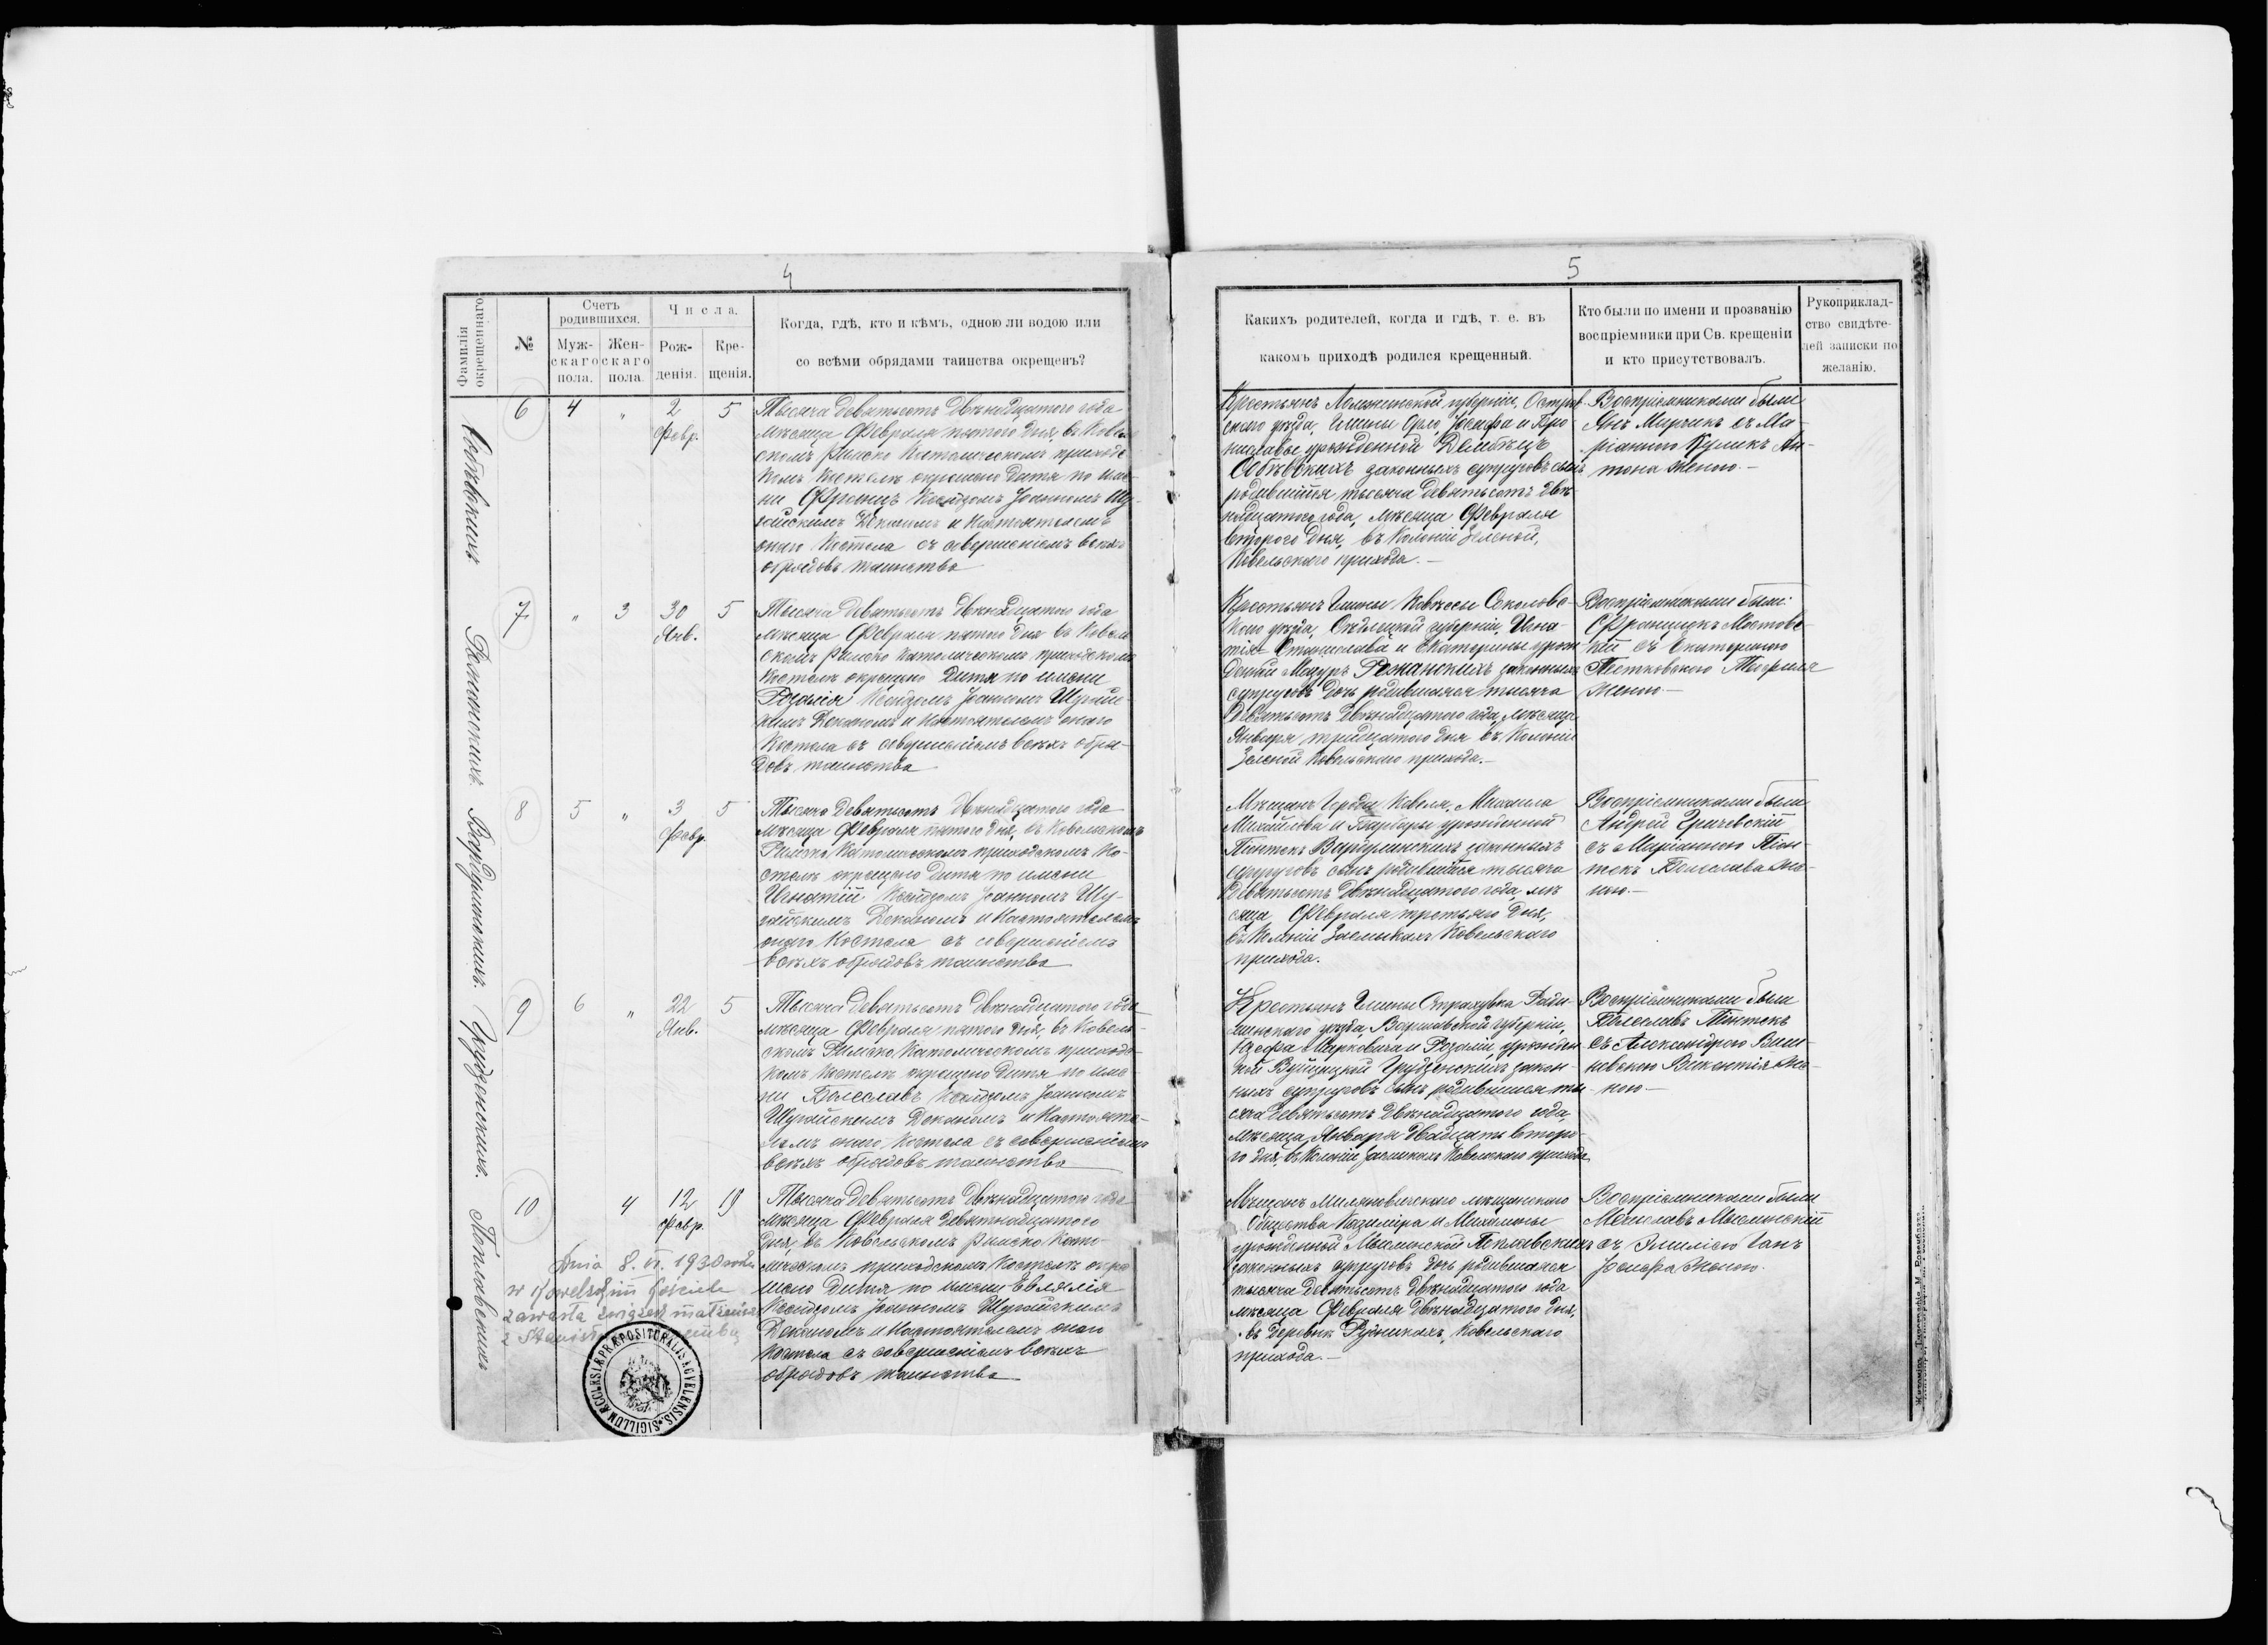 4
Фамилія окрещеннаго.
№
Счетъ родившихся.
Мужскаго пола.
Женскаго пола.
Числа.
Рожденія.
Крещенія.
Когда, гдѣ, кто и кѣмъ, одною ли водою или
со всѣми обрядами таинства окрещенъ?
6
4
"
2
Февр.
5
Тысяча девятьсотъ двѣнадцатого года
мѣсяца Февраля пятого дня, въ Ковель
скомъ Римско Католическомъ приходс
комъ Костелѣ окрещено дитя по име
ни Францъ Ксендзомъ Іоанномъ Шу-
гайскимъ Деканомъ и Настоятелемъ
оного Костела съ совершеніемъ всѣхъ
обрядовъ таинства
7
"
3
30
Янв.
5
Тысяча девятьсотъ двѣнадцатого года
мѣсяца Февраля пятого дня въ Ковель
скомъ Римско Католическомъ приходскомъ
Костелѣ окрещено дитя по имени
Розалія Ксендзомъ Іоанномъ Шугайс
кимъ Деканомъ и Настоятелемъ оного
Костела съ совершеніемъ всѣхъ обря-
довъ таинства
Вардашинскихъ.
8
5
"
3
Февр.
5
Тысяча девятьсотъ двѣнадцатого года
мѣсяца Февраля пятого дня, въ Ковельскомъ
Римско Католическомъ приходскомъ Ко-
стелѣ окрещено дитя по имени
Игнатій Ксендзомъ Іоанномъ Шу-
гайскимъ Деканомъ и Настоятелемъ
оного Костела съ совершеніемъ
всѣхъ обрядовъ таинства
Грудзенскихъ.
9
6
"
22
Янв.
5
Тысяча девятьсотъ двѣнадцатого года
мѣсяца Февраля пятого дня, въ Ковель-
скомъ Римско Католическомъ приходс-
комъ Костелѣ окрещено дитя по име
ни Болеславъ Ксендзомъ Іоанномъ
Шугайскимъ Деканомъ и Настояте-
лемъ оного Костела съ совершеніемъ
всѣхъ обрядовъ таинства
Поплавскихъ
10
4
12
Февр.
19
Тысяча девятьсотъ двѣнадцатого года
мѣсяца Февраля девятнадцатого
дня, въ Ковельскомъ Римско Като-
лическомъ приходскомъ Костелѣ окре
щено дитя по имени Евлялія
Ксендзомъ Іоанномъ Шугайскимъ
Деканомъ и Настоятелемъ оного
Костела съ совершеніемъ всѣхъ
обрядовъ таинства
Dnia 8. VI. 1930 roku
w Kowelskim kościele
zawarła związek małżeński
SIGILLUM ECCLESIÆ PRÆPOSITURALIS
5
Какихъ родителей, когда и гдѣ, т. е. въ
какомъ приходѣ родился крещенный.
Кто были по имени и прозванію
воспріемники при Св. крещеніи
и кто присутствовалъ.
Рукоприклад-
ство свидѣте-
лей записки по
желанію.
Крестьянъ Ломжинской губерніи, Остров
скаго уѣзда, Гмины Орло, Іосифа и Бро
ниславы урожденной
законныхъ супруговъ сынъ
родившійся тысяча девятьсотъ двѣ
надцатого года, мѣсяца Февраля
второго дня, въ Колоніи Зеленой,
Ковельскаго прихода.—
Воспріемниками были
Янъ Мирчикъ съ Ма-
ріанною Куликъ Ан-
тона женою.—
Крестьянъ Гмины Соколовс
каго уѣзда, Сѣдлецкой губерніи, Игна-
тія Станислава и Екатерины урож
денной Мазуръ законныхъ
супруговъ дочь родившаяся тысяча
девятьсотъ двѣнадцатого года, мѣсяца
Января тридцатого дня въ Колоніи
Зеленой Ковельскаго прихода.—
Воспріемниками были:
Францишекъ Мостовс
кій съ Екатериною
женою.—
Мѣщанъ Города Ковеля, Михаила
Михайлова и Барбары урожденной
Піонтекъ Вардашинскихъ законныхъ
супруговъ сынъ родившійся тысяча
девятьсотъ двѣнадцатого года, мѣ
сяца Февраля третьяго дня,
въ Колоніи Засмыкахъ Ковельскаго
прихода.
Воспріемниками были
Андрей
съ Маріанною Піон-
текъ Болеслава же-
ною.—
Крестьянъ Гмины Страхувка Рады-
минскаго уѣзда, Варшавской губерніи,
Іосифа Марковича и Розаліи урожден
ной Грудзенскихъ закон-
ныхъ супруговъ сынъ родившійся ты
сяча девятьсотъ двѣнадцатого года,
мѣсяца Января двадцать второ-
го дня, въ Колоніи Засмыкахъ Ковельскаго прихода.
Воспріемниками были
Болеславъ Піонтекъ
съ Александрою Виш-
невскою Викентія же-
ною—
Мѣщанъ Миляновичскаго мѣщанскаго
Общества Казиміра и Михалины
урожденной Мыслинской Поплавскихъ
законныхъ супруговъ дочь родившаяся
тысяча девятьсотъ двѣнадцатого года
мѣсяца Февраля двѣнадцатого дня,
въ деревнѣ Рудникахъ, Ковельскаго
прихода.—
Воспріемниками были
Мечиславъ Мыслинскій
съ Эмиліею Ганъ
Іосифа женою.